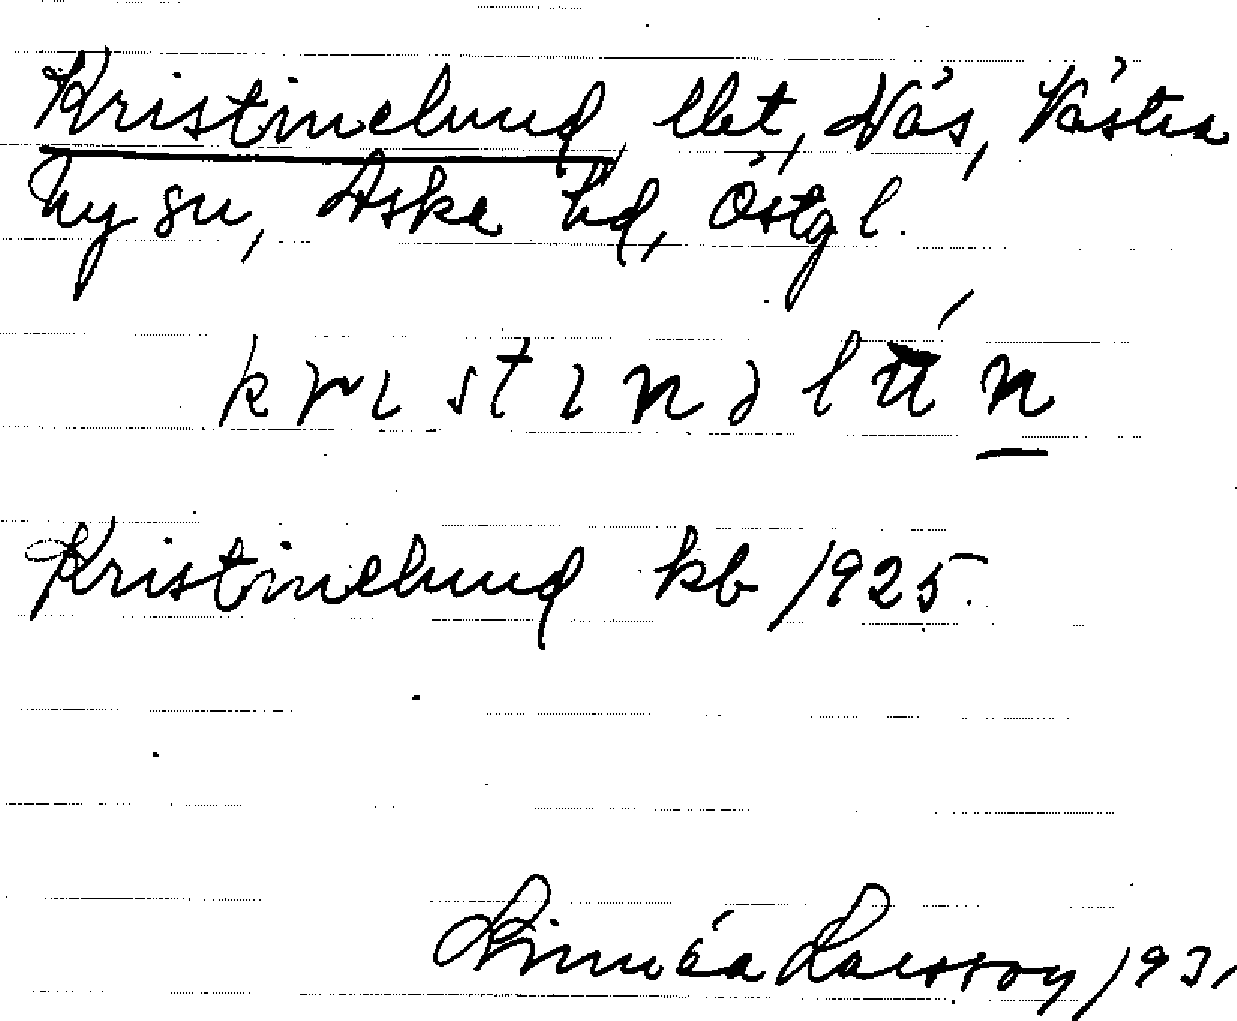 Kristinelund, lht, Näs, Västra
Ny sn, Aska hd, Östgl.
kristinəlún
Kristinelund kb 1925.
Linnéa Larsson 1931